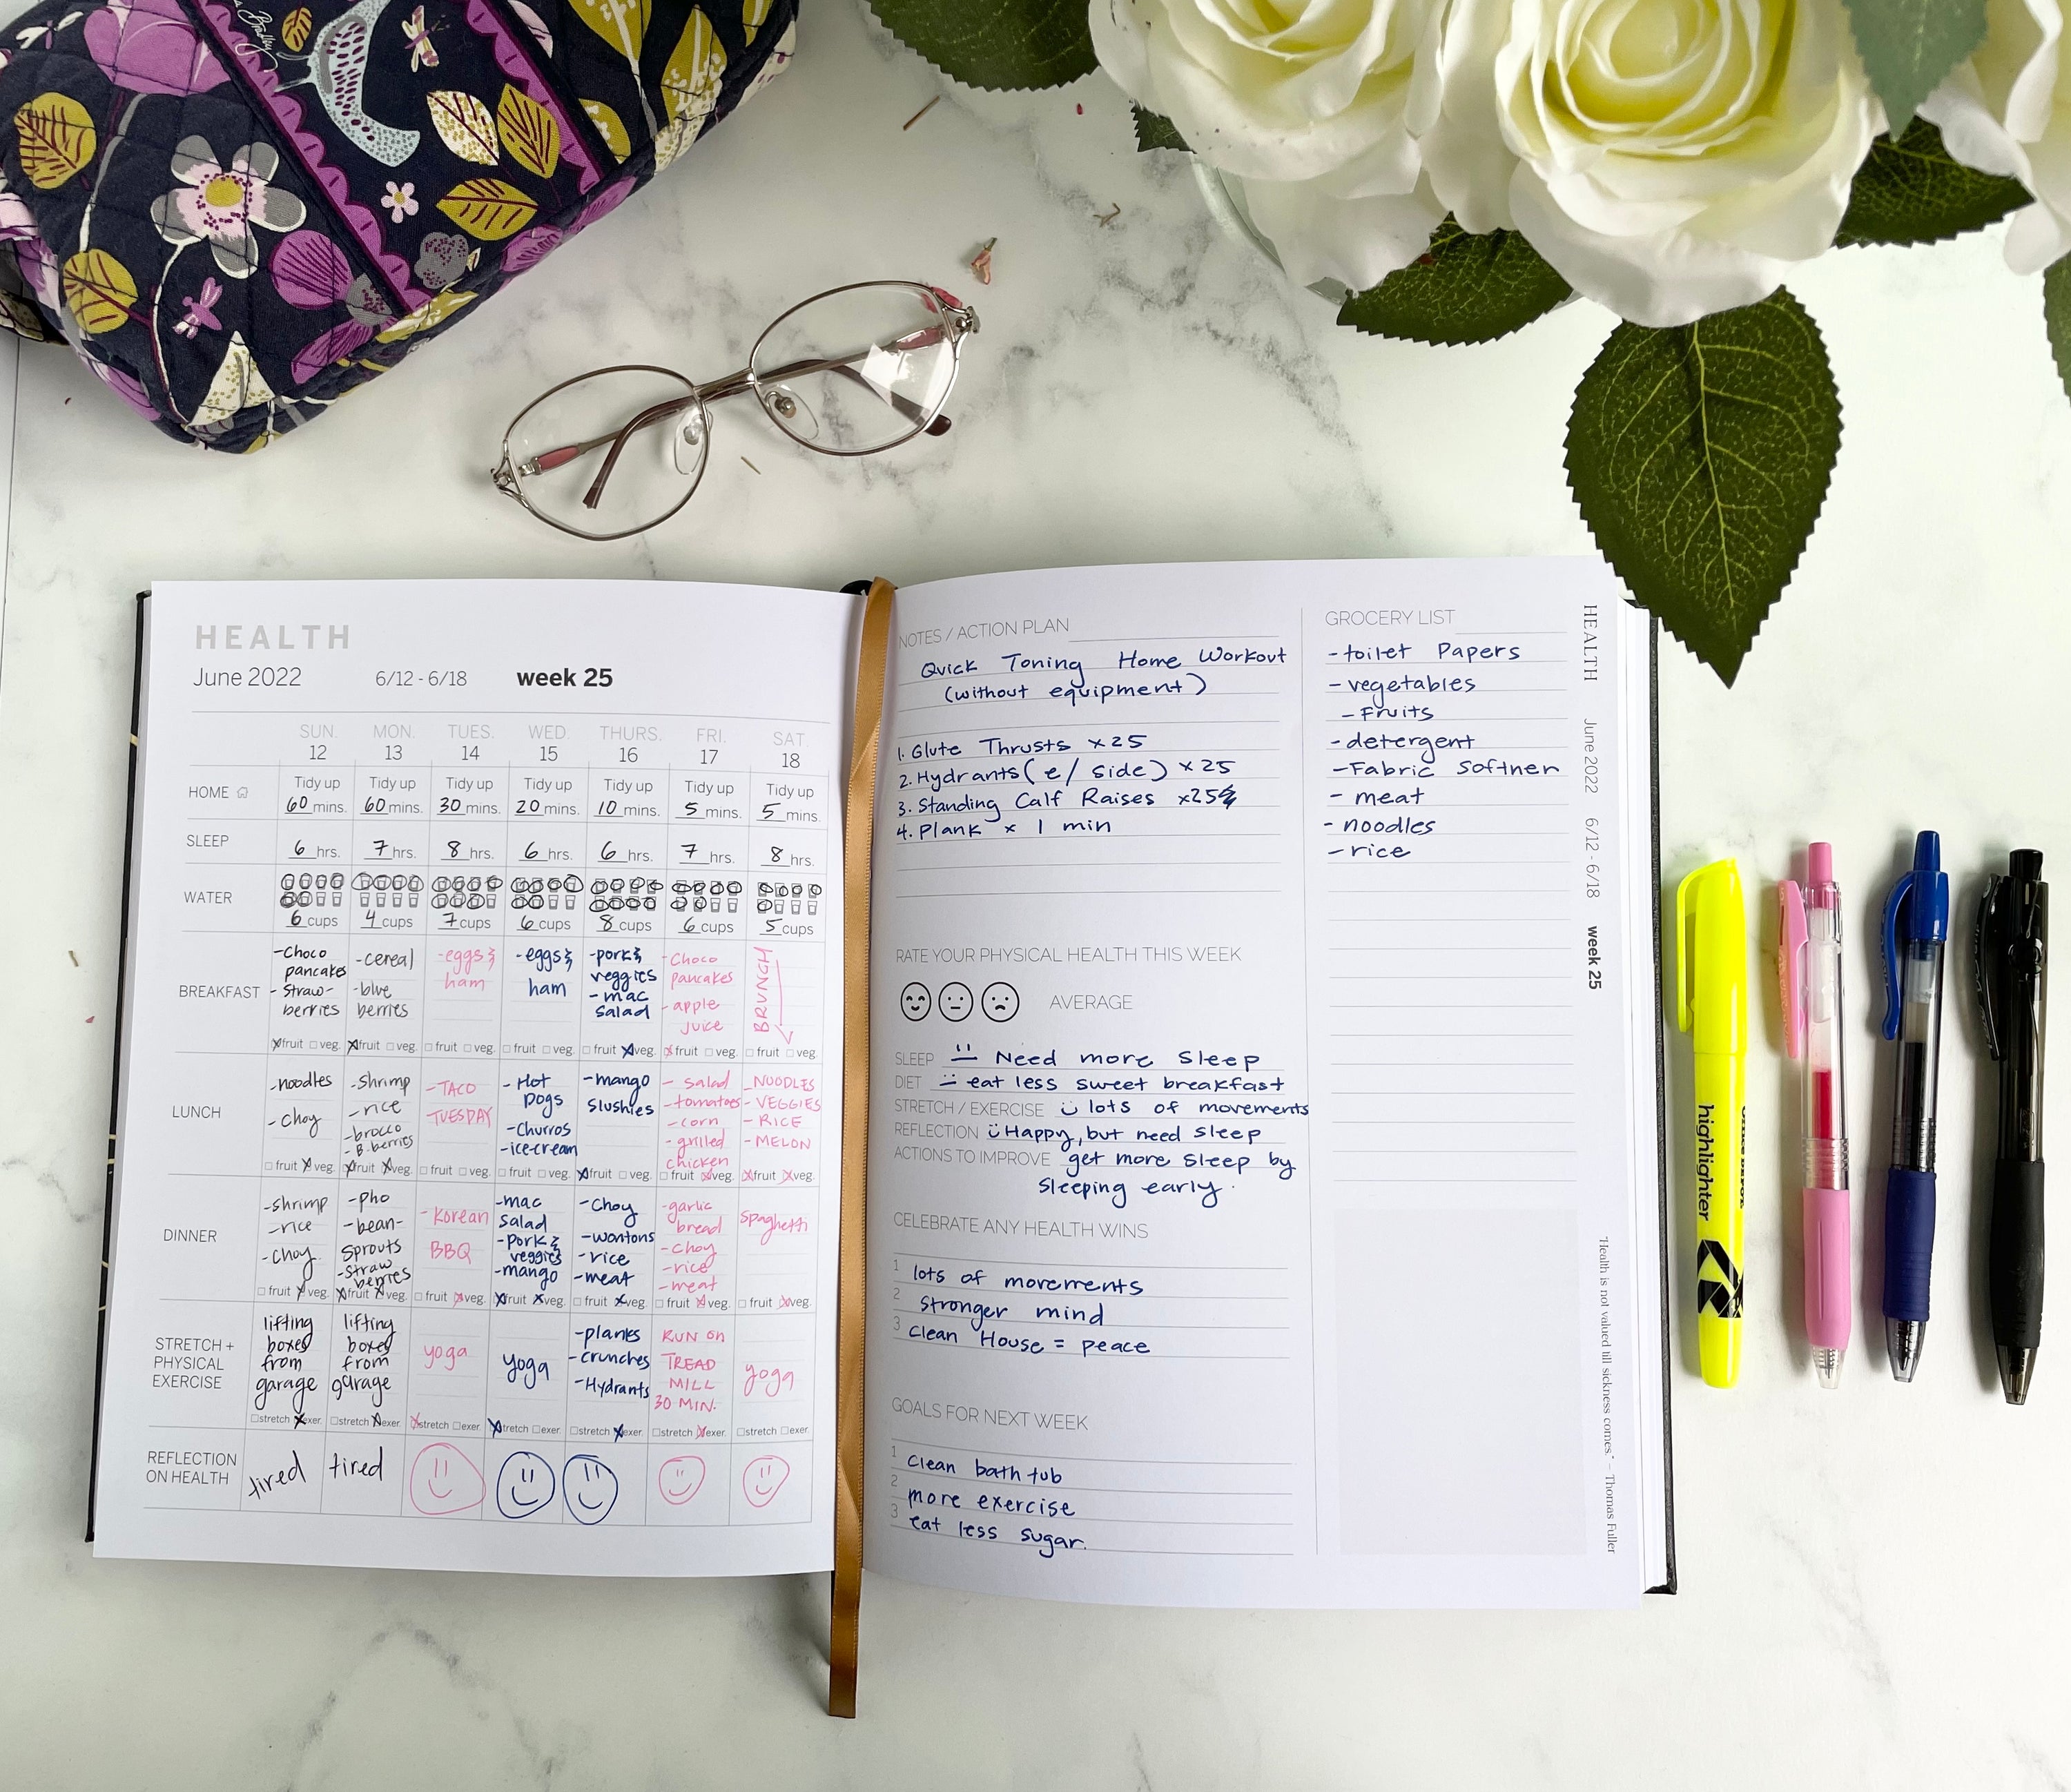 Bradley
HEALTH
June 2022 6/12 - 6/18 week 25
SUN. MON. TUES. WED. THURS. FRI. SAT
12 13 14 15 16 17 18
HOME Tidy up Tidy up Tidy up Tidy up Tidy up Tidy up Tidy up
60 mins. 60 mins. 30 mins. 20 mins. 10 mins. 5 mins. 5 mins.
SLEEP 6 hrs. 7 hrs. 8 hrs. 6 hrs. 6 hrs. 7 hrs. 8 hrs.
WATER
6 cups 4 cups 7 cups 6 cups 8 cups 6 cups 5 cups
BREAKFAST
-Choco
pancakes
- Straw-
berries
-cereal
-blue
berries
-eggs &
ham
-eggs &
ham
-pork &
veggies
-mac
Salad
-Choco
pancakes
-apple
juice
BRUNCH
fruit veg. fruit veg. fruit veg. fruit veg. fruit veg. fruit veg. fruit veg.
LUNCH
-noodles
-choy
-shrimp
-rice
-brocco
-B.berries
-TACO
TUESDAY
- Hot
Dogs
-Churros
-ice-cream
-mango
Slushies
- Salad
-tomatoes
-corn
-grilled
chicken
-NOODLES
- VEGGIES
- RICE
- MELON
fruit veg. fruit veg. fruit veg. fruit veg. fruit veg. fruit veg. fruit veg.
DINNER
-shrimp
-rice
-choy
-pho
-bean-
Sprouts
-straw
berries
- Korean
BBQ
-mac
Salad
-pork &
veggies
-mango
-Choy
-wontons
-rice
-meat
-garlic
bread
-choy
-rice
-meat
Spaghetti
fruit veg. fruit veg. fruit veg. fruit veg. fruit veg. fruit veg. fruit veg.
STRETCH +
PHYSICAL
EXERCISE
lifting
boxes
from
garage
lifting
boxes
from
garage
yoga
yoga
-planks
-crunches
-Hydrants
RUN on
TREAD
MILL
30 MIN.
yoga
stretch exer. stretch exer. stretch exer. stretch exer. stretch exer. stretch exer. stretch exer.
REFLECTION
ON HEALTH
tired tired
NOTES / ACTION PLAN
Quick Toning Home Workout
(without equipment)
1. Glute Thrusts x25
2. Hydrants (e/ side) x25
3. Standing Calf Raises x25
4. Plank x 1 min
RATE YOUR PHYSICAL HEALTH THIS WEEK
AVERAGE
SLEEP Need more Sleep
DIET eat less sweet breakfast
STRETCH / EXERCISE lots of movements
REFLECTION Happy, but need sleep
ACTIONS TO IMPROVE get more sleep by
sleeping early.
CELEBRATE ANY HEALTH WINS
1 lots of movements
2 Stronger mind
3 clean House = peace
GOALS FOR NEXT WEEK
1 clean bath tub
2 more exercise
3 eat less sugar.
GROCERY LIST
- toilet Papers
- vegetables
- Fruits
- detergent
- Fabric Softner
- meat
- noodles
- rice
HEALTH June 2022 6/12 - 6/18 week 25
"Health is not valued till sickness comes." - Thomas Fuller
highlighter